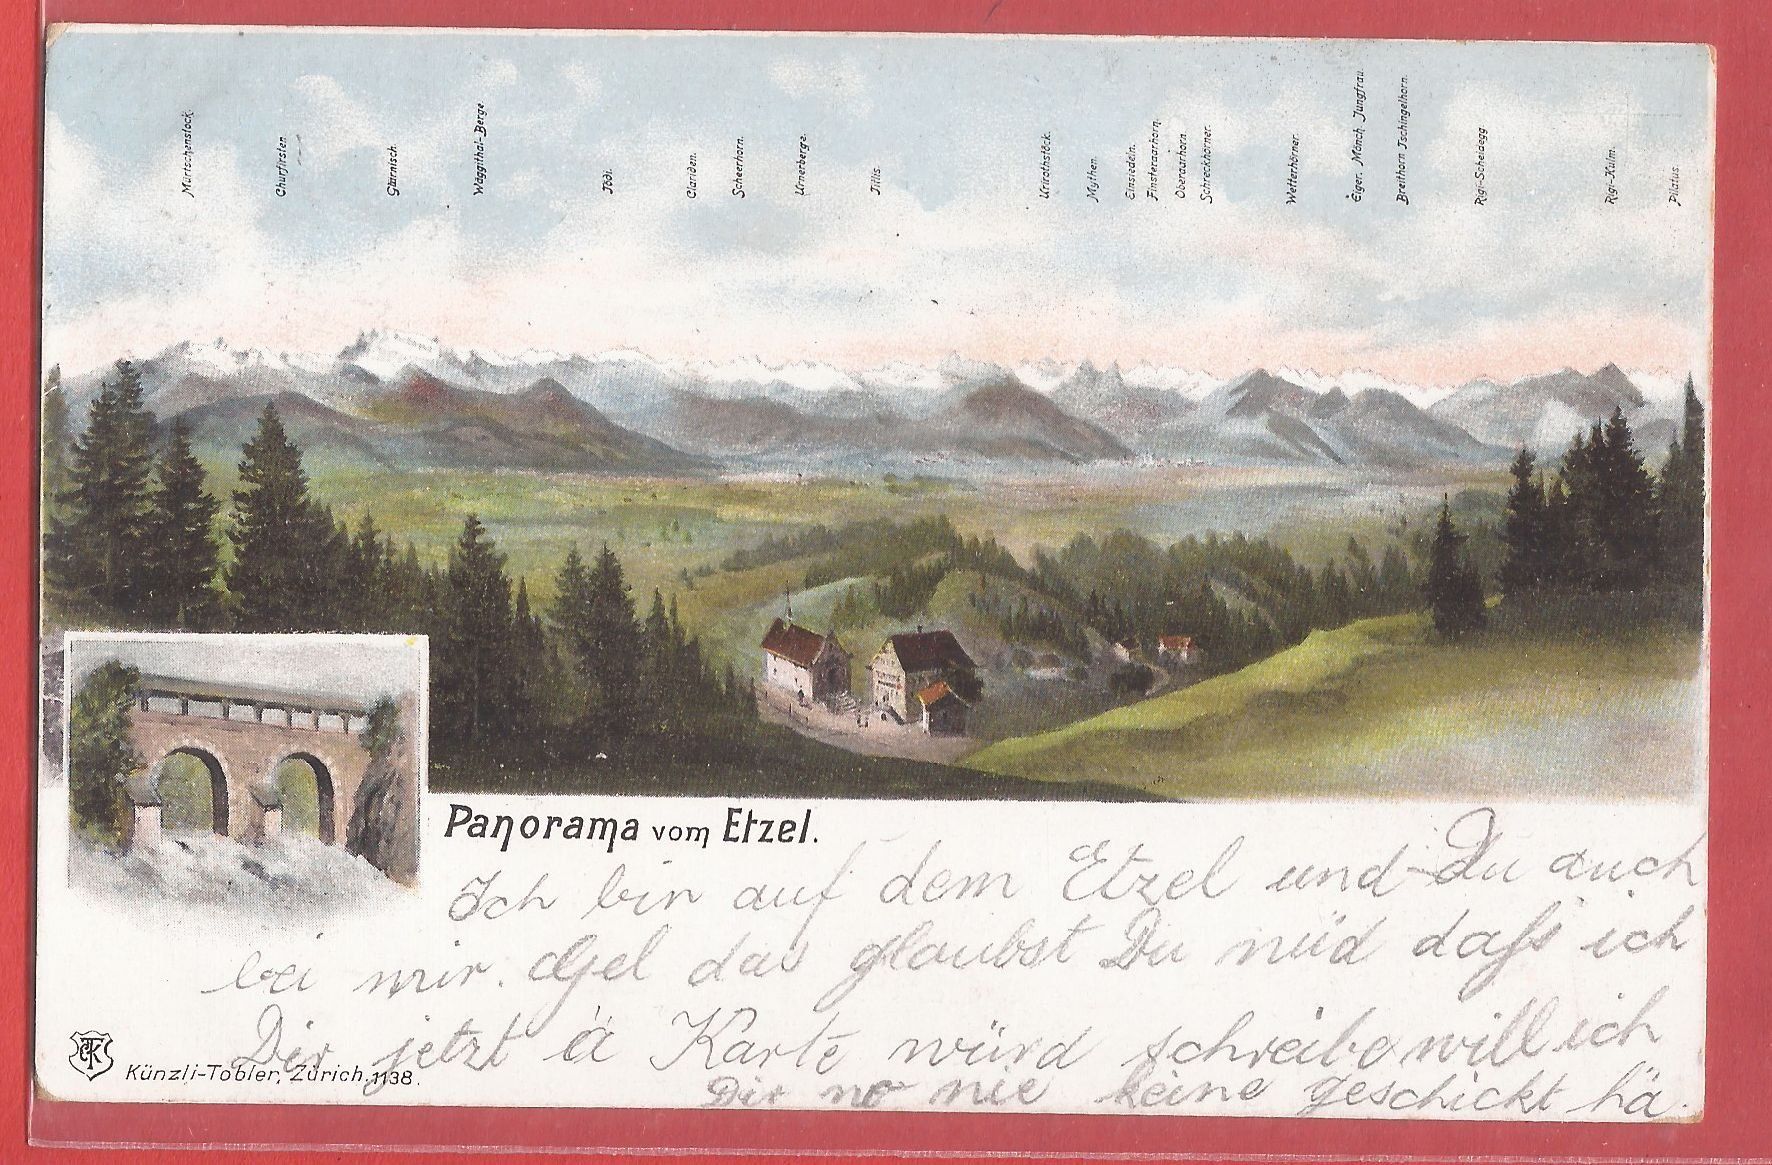 Mürtschenstock.
Churfirsten
Glärnisch.
Wäggithal-Berge
Tödi.
Clariden.
Scheerhorn.
Urnerberge.
Titlis.
Urirothstock.
Mythen.
Einsiedeln.
Finsteraarhorn.
Oberaarhorn
Schreckhörner.
Wetterhörner.
Eiger. Mönch. Jungfrau.
Breithorn Tschingelhorn.
Rigi-Scheidegg
Rigi-Kulm.
Pilatus.
Panorama vom Etzel.
Ich bin auf dem Etzel und Du auch
bei mir. Gel das glaubst Du nüd daß ich
Dir jetzt ä Karte würd schreibe will ich
Dir no nie keine geschickt hä.
CTK
Künzli-Tobler, Zürich. 1138.